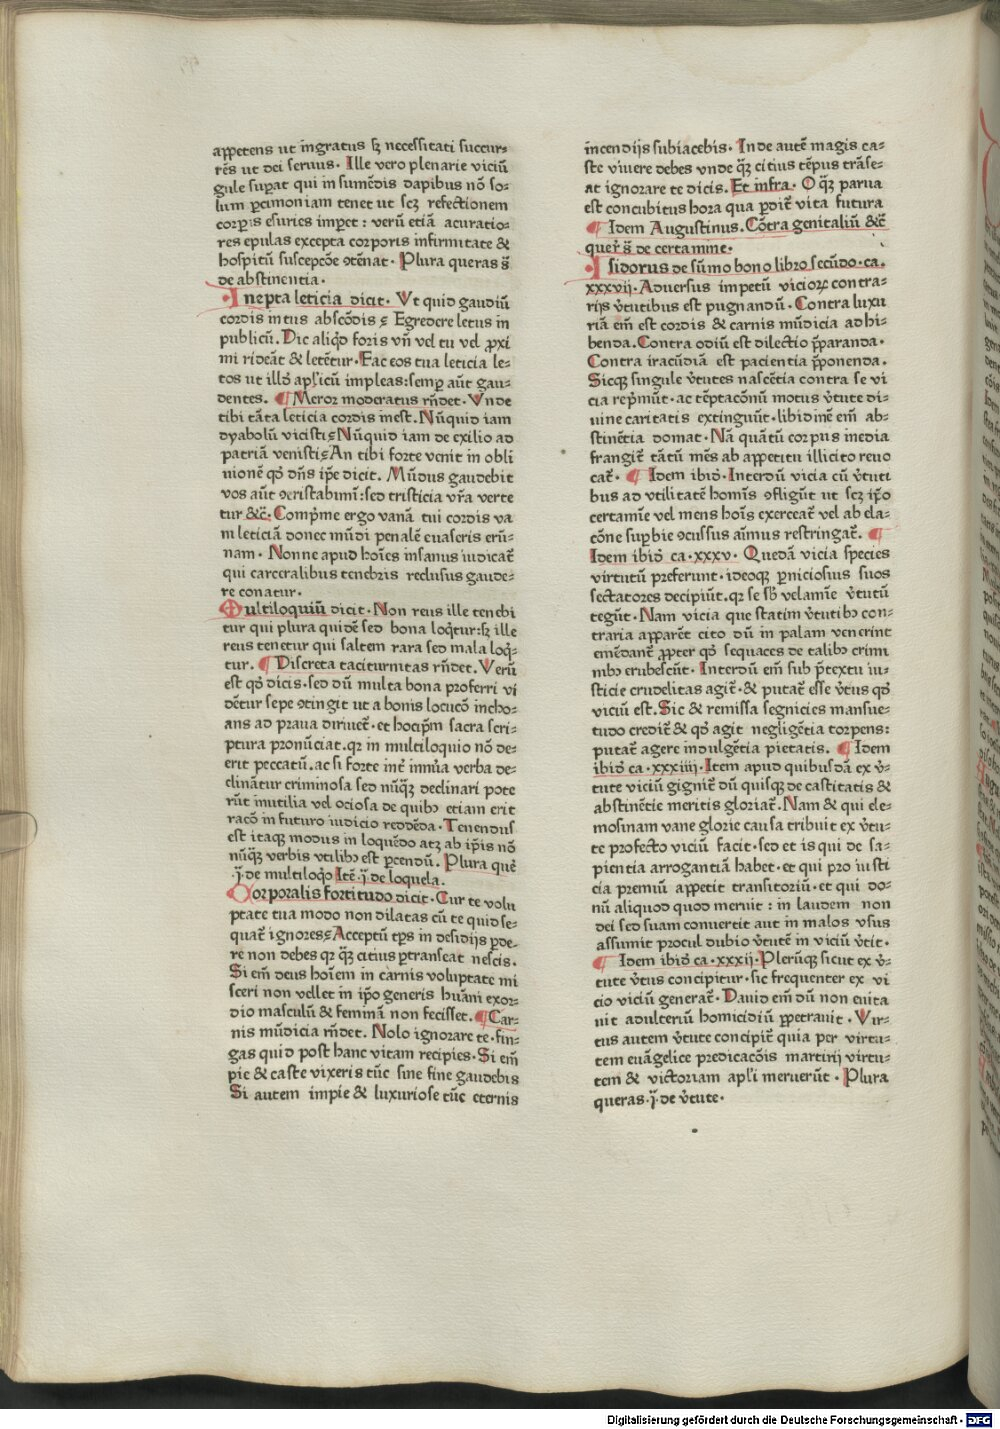 appetens ut ingratus sꝫ necessitati succur⸗
rēs ut dei seruus. Ille vero plenarie viciū
gule suꝑat qui in sumēdis dapibus nō so⸗
lum ꝑcimoniam tenet ut scꝫ refectionem
corꝑis esuries impet : verū etiā acuratio⸗
res epulas excepta corporis infirmitate &
hospitū suscepcōe ꝯtēnat. Plura queras s̄
de abstinentia.
Inepta leticia dicit. Vt quid gaudiū
cordis intus abscōdis? Egredere letus in
publicū. Dic aliqd foris vn̄ vel tu vel ꝓxi
mi rideāt & letētur. Fac eos tua leticia le⸗
tos ut illd apl'icū impleas: semꝑ aūt gau⸗
dentes. ¶ Meror moderatus rn̄det. Vnde
tibi tāta leticia cordis inest. Nūquid iam
dyabolū vicisti? Nūquid iam de exilio ad
patriā venisti? An tibi forte venit in obli
nionē qd dn̄s ip̄e dicit. Mūdus gaudebit
vos aūt ꝯtristabimī: sed tristicia vr̄a verte
tur &c̄. Comp̄me ergo vanā tui cordis va
m leticiā donec mūdi penalē euaseris erū⸗
nam. Nonne apud hoīes insanus iudicat̄
qui carceralibus tenebris reclusus gaude⸗
re conatur.
Multiloquiū dicit. Non reus ille tenebi
tur qui plura quidē sed bona loqtur: sꝫ ille
reus tenetur qui saltem rara sed mala loq⸗
tur. ¶ Discreta taciturnitas rn̄det. Verū
est qd dicis. sed dū multa bona proferri vi
dētur sepe ꝯtingit ut a bonis locucō incho⸗
ans ad praua diriuet̄. et hoc ip̄m sacra scri⸗
ptura pronūciat. qr in multiloquio nō de⸗
erit peccatū. ac si forte int̄ inmīa verba de⸗
clināntur criminosa sed nūqꝫ declinari pote
rūt inutilia vel ociosa de quibꝫ etiam erit
racō in futuro iudicio reddēda. Tenendus
est itaqꝫ modus in loquēdo atꝫ ab ip̄is nō
nūqꝫ verbis vtilibꝫ est ꝑcendū. Plura que
.j̄. de multiloqo Itē .j̄. de loquela.
Corporalis fortitudo dicit. Cur te volu
ptate tua modo non dilatas cū te quid se⸗
quat̄ ignores? Acceptū tp̄s in desidijs ꝑde⸗
re non debes qꝛ qꝫ citius ꝑtranseat nescis.
Si em̄ deus hoīem in carnis voluptate mi
sceri non vellet in ip̄o generis hūani exor⸗
dio masculū & feminā non fecisset. ¶ Car⸗
nis mūdicia rn̄det. Nolo ignorare te. fin⸗
gas quid post hanc vitam recipies. Si em̄
pie & caste vixeris tūc sine fine gaudebis
Si autem impie & luxuriose tūc eternis
incendijs subiacebis. Inde autē magis ca⸗
ste viuere debes vnde qꝫ citius tēpus trāse⸗
at ignorare te dicis. Et infra. O qꝫ parua
est concubitus hora qua ꝑdit̄ vita futura
¶ Idem Augustinus. Cōtra genitaliū &c̄
quer̄ s̄ de certamine.
Isidorus de sūmo bono libro secūdo. ca.
xxxvij. Aduersus impetū viciorꝝ contra⸗
rijs v̄tutibus est pugnandū. Contra luxu
riā em̄ est cordis & carnis mūdicia adhi⸗
benda. Contra odiū est dilectio p̄paranda.
Contra iracūdiā est paciencia p̄ponenda.
Sicqꝫ singule v̄tutes nascētia contra se vi
cia rep̄mūt. ac tēptacōnū motus v̄tute di⸗
uine caritatis extinguūt. libidinē em̄ ab⸗
stinētia domat. Nā quātū corpus inedia
frangit̄ tātū mēs ab appetitu illicito reuo
cat̄. ¶ Idem ibid. Interdū vicia cū v̄tuti
bus ad vtilitatē homīs ꝯfligūt ut scꝫ ip̄o
certamīe vel mens hoīs exerceat̄ vel ab ela⸗
cōne suꝑbie ꝯcussus aīmus restringat̄. ¶
Idem ibid ca.xxxv. Quedā vicia species
virtutū preferunt. ideoqꝫ ꝑniciosius suos
sectatores decipiūt. qꝛ se sb velamīe v̄tutū
tegūt. Nam vicia que statim v̄tutibꝫ con⸗
traria apparēt cito dū in palam venerint
emēdant̄ ꝓpter qd sequaces de talibꝫ crimi
nibꝫ erubescūt. Interdū em̄ sub p̄textu iu⸗
sticie crudelitas agit̄. & putat̄ esse v̄tus qd
viciū est. Sic & remissa segnicies mansue⸗
tudo credit̄ & qd agit negligētia torpens:
putat̄ agere indulgētia pietatis. ¶ Idem
ibid ca.xxxiiij. Item apud quibusdā ex v̄⸗
tute viciū gignit̄ dū quisqꝫ de castitatis &
abstinētie meritis gloriat̄. Nam & qui ele⸗
mosinam vane glorie causa tribuit ex v̄tu⸗
te profecto viciū facit. sed et is qui de sa⸗
pientia arrogantiā habet. et qui pro iusti
cia premiū appetit transitoriū. et qui do⸗
nū aliquod quod meruit : in laudem non
dei sed suam conuertit aut in malos vsus
assumit procul dubio v̄tutē in viciū v̄tit.
¶ Idem ibid ca.xxxij. Plerūqꝫ sicut ex v̄⸗
tute v̄tus concipitur. sic frequenter ex vi
cio viciū generat̄. Dauid em̄ dū non euita
uit adulteriū homicidiū ꝑpetrauit. Vir⸗
tus autem v̄tute concipit̄ quia per virtu⸗
tem euāgelice predicacōis martirij virtu⸗
tem & victoriam apl'i meruerūt. Plura
queras .j̄. de v̄tute.
Digitalisierung gefördert durch die Deutsche Forschungsgemeinschaft - DFG